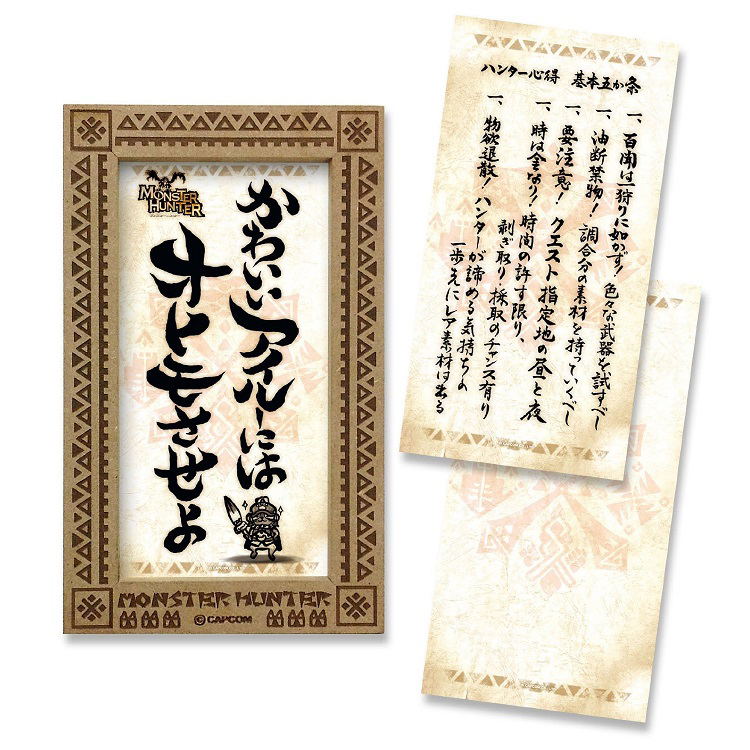 MONSTER HUNTER
かわいいアイルーには
オトモさせよ
MONSTER HUNTER
©CAPCOM
ハンター心得 基本五か条
一、百聞は一狩りに如かず！色々な武器を試すべし
一、油断禁物！調合分の素材を持っていくべし
一、要注意！クエスト指定地の昼と夜
一、時は金なり！時間の許す限り、
剥ぎ取り・採取のチャンス有り
一、物欲退散！ハンターが諦める気持ちの
一歩うえにレア素材は出る